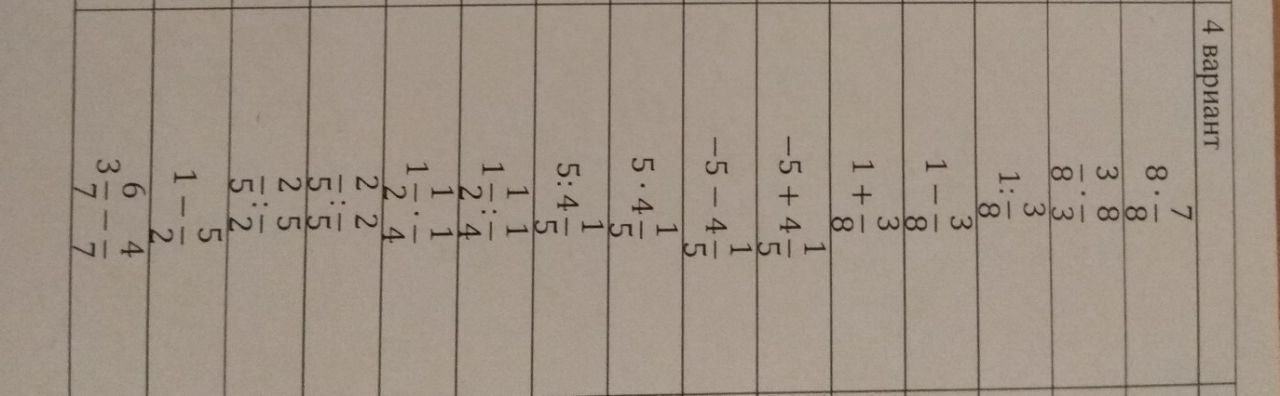 4 вариант
8 · 7/8
3/8 · 8/3
1 : 3/8
1 − 3/8
1 + 3/8
−5 + 4 1/5
−5 − 4 1/5
5 · 4 1/5
5 : 4 1/5
1 1/2 : 1/4
1 1/2 · 1/4
2/5 : 2/5
2/5 : 5/2
1 − 5/2
3 6/7 − 4/7